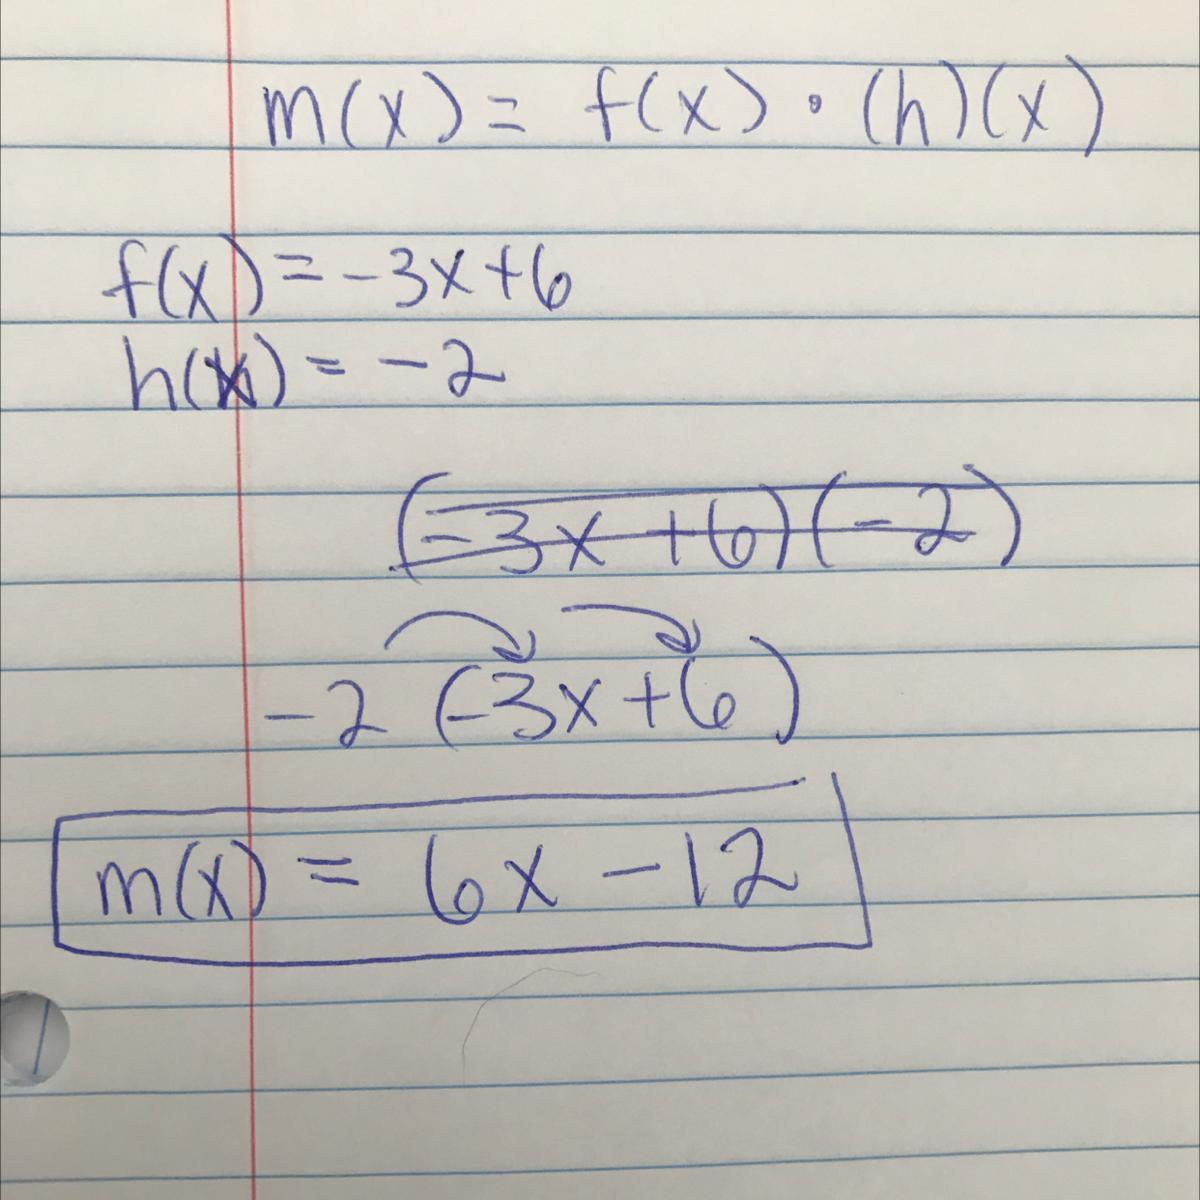 m(x) = f(x) · (h)(x)
f(x) = -3x+6
h(x) = -2
(-3x +6)(-2)
-2 (-3x+6)
m(x) = 6x -12